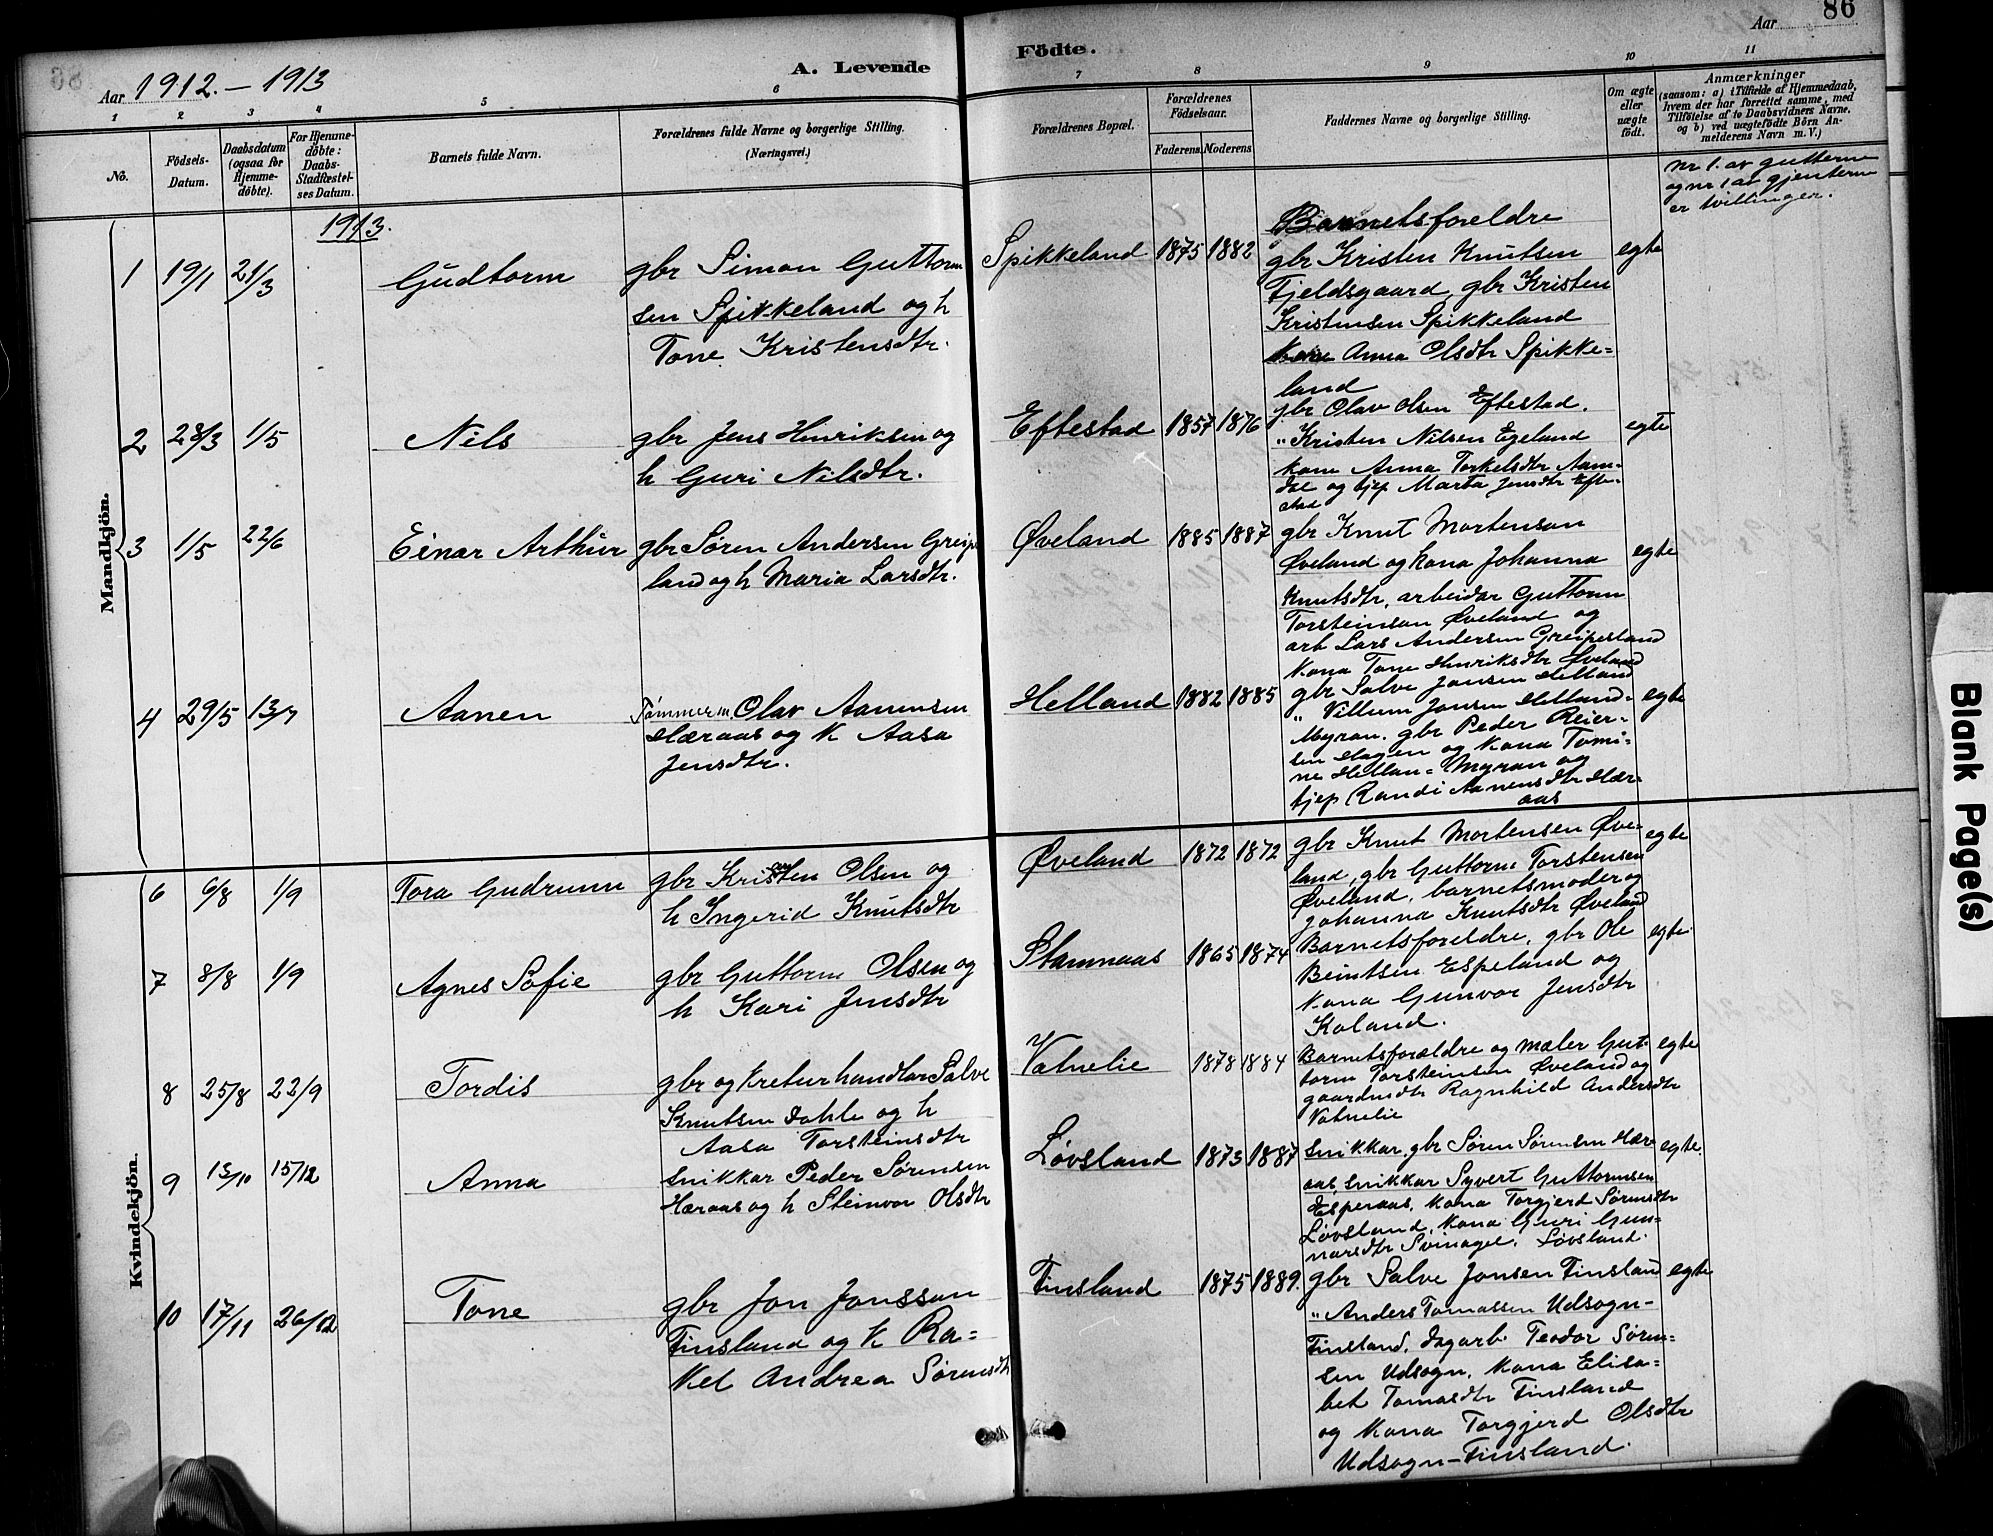 Aar 1912.-1913
A. Levende
Födte.
Aar
86
1 2 3 4 5 6 7 8 9 10 11
No.
Födsels-Datum.
Daabsdatum (ogsaa for Hjemme-döbte).
For Hjemme-döbte: Daabs-Stadfæstel-ses Datum.
Barnets fulde Navn.
Forældrenes fulde Navne og borgerlige Stilling.
(Næringsvei.)
Forældrenes Bopæl.
Forældrenes Födselsaar.
Faderens. Moderens
Faddernes Navne og borgerlige Stilling.
Om ægte eller uægte födt.
Anmærkninger
(saasom: a) i Tilfælde af Hjemmedaab,
hvem der har forrettet samme, med
Tilföielse af to Daabsvidners Navne.
og b) ved uægtefödte Börn An-
melderens Navn m. V.)
nr 1. av gutterne
og nr 1 av gjenterne
er tvillinger.
Mandkjön.
1913.
1 19/1 21/3 Gudtorm
gbr Simon Guttorm
sen Spikkeland og h
Tone Kristensdtr.
Spikkeland 1875 1882
Barnets foreldre
gbr Kristen Knutsen
Fjeldsgaard, gbr Kristen
Kristensen Spikkeland
Anna Olsdtr Spikke=
land
egte
2 23/3 1/5 Nils
gbr Jens Henriksen og
h Guri Nilsdtr.
Eftestad 1857 1876
gbr Olav Olsen Eftestad.
" Kristen Nilsen Egeland
kone Anna Torkelsdtr Aam-
dal og tjep Marta Jensdtr Efte-
stad
egte
3 1/5 22/6 Einar Arthur
gbr Søren Andersen Greips
land og h Maria Larsdtr.
Øveland 1885 1887
gbr Knut Mortenson
Øveland og kona Johanna
Knutsdtr, arbeidar Guttorm
Torsteinson Øveland og
arb Lars Andersen Greipesland
Kona Tone Henriksdtr Øveland
egte
4 29/5 13/7 Aanen
Tømmerm. Olav Aanensen
Hæraas og k Aasa
Jensdtr.
Helland 1882 1885
gbr Salve Jonsen Helland
" Villum Jonsen Helland=
Myran. gbr Peder Reier-
sen Hagen og kona Tomi-
ne Hellan=Myran og
tjep Randi Aanensdtr Hær-
aas
egte
Kvindekjön.
6 6/8 1/9 Tora Gudrunn
gbr Kristen Olsen og
h Ingerid Knutsdtr
Øveland 1872 1872
gbr Knut Mortensen Øve-
land, gbr Guttorm Torstensen
Øveland, barnets moder og
Johanna Knutsdtr Øveland
egte
7 8/8 1/9 Agnes Sofie
gbr Guttorm Olsen og
h Kari Jensdtr
Stamnaas 1865 1874
Barnets foreldre, gbr Ole
Beintsen Espeland og
Kona Gunvor Jensdtr
Koland.
egte
8 25/8 22/9 Tordis
gbr og kreturhandlar Salve
Knutsen Dahle og h
Aasa Torsteinsdtr
Vatnelie 1878 1884
Barnets forældre og maler Gut-
torm Torsteinsen Øveland og
gaardmdtr Ragnhild Andersdtr
Vatnelie
egte
9 13/10 15/12 Anna
Snikkar Peder Sørensen
Hæraas og h Steinvor Olsdtr
Løvsland 1873 1887
Snikkar. gbr Søren Sørensen Hær
aas, snikkar Syvert Guttormsen
Esperaas, kona Torgjerd Sørensdtr
Løvsland, kona Guri Gun-
narsdtr Løvsland.
egte.
10 17/11 26/12 Tone
gbr Jon Jonsson
Finsland og k Ra=
kel Andrea Sørensdtr
Finsland 1875 1889.
gbr Salve Jonsen Finsland
" Anders Tomassen Udsogn-
Finsland, dagarb. Teodor Søren-
sen Udsogn, kona Elisa=
bet Tomasdtr Finsland
og kona Torgjerd Olsdtr
Udsogn-Finsland.
egte
Blank Page(s)